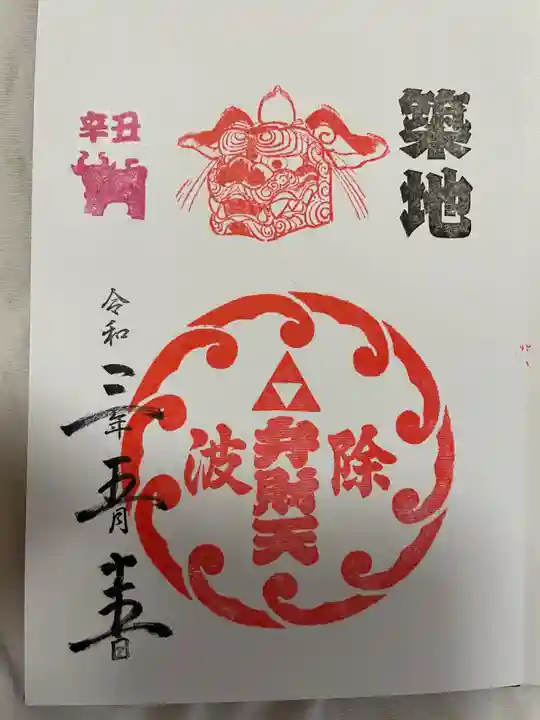 築地
辛丑
波除
弁財天
令和三年五月日